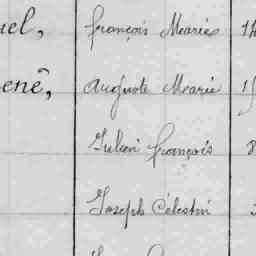 uel, François Marie 1
ené, Auguste Marie 1
Julien François
Joseph Célestin